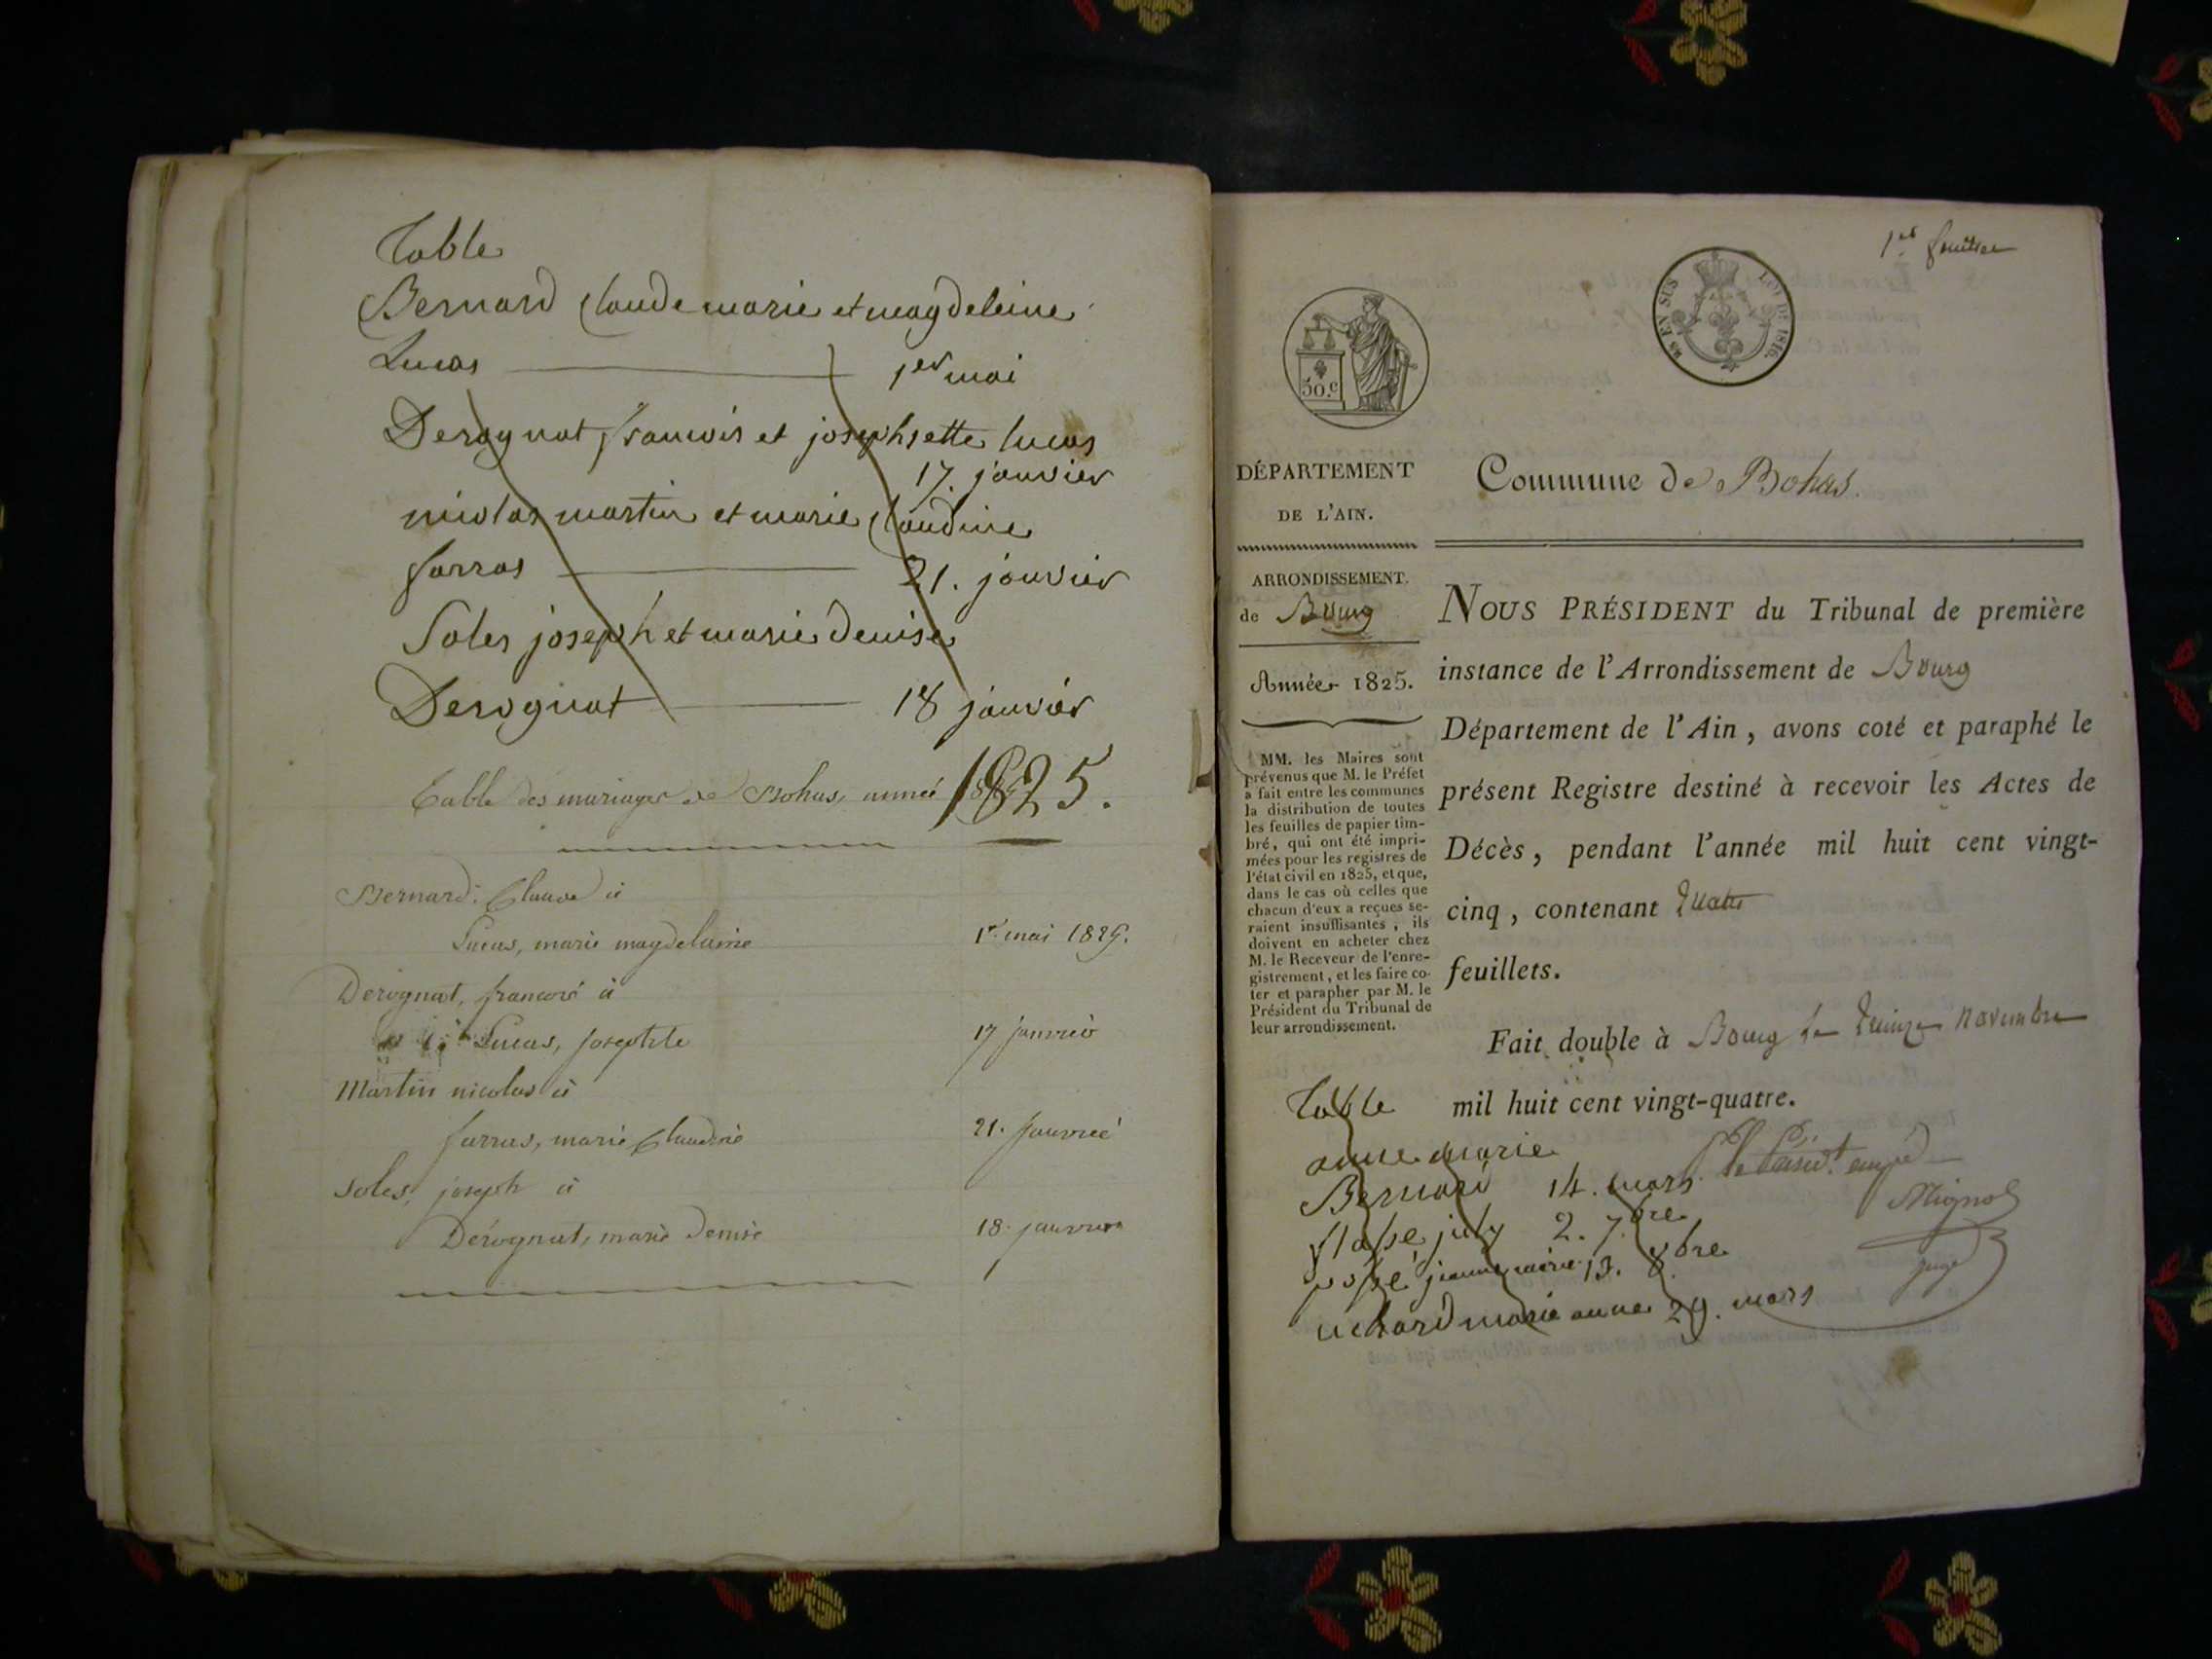 Table
Bernard Claude marie et magdeleine
Lucas 1er mai
Derognat francois et josephette lucas
17. janvier
nicolas martin et marie Claudine
farras 21. janvier
Soles joseph et marie denise
Derognat 18 janvier
Table des mariages de Bohas, année 1825.
Bernard. Claude à
Lucas, marie magdelaine 1er mai 1825.
Derognat, francois à
Lucas, josephte 17 janvier
Martin nicolas à
farras, marie Claudine 21. janvier
Soles, joseph à
Dérognat, marie denise 18. janvier
1er feuillet
EN SUS
LOI DE 1816.
50.c
DÉPARTEMENT
DE L'AIN.
ARRONDISSEMENT.
de Bourg
Année 1825.
MM. les Maires sont
prévenus que M. le Préfet
a fait entre les communes
la distribution de toutes
les feuilles de papier tim-
bré, qui ont été impri-
mées pour les registres de
l'état civil en 1825, et que,
dans le cas où celles que
chacun d'eux a reçues se-
raient insuffisantes, ils
doivent en acheter chez
M. le Receveur de l'enre-
gistrement, et les faire co-
ter et parapher par M. le
Président du Tribunal de
leur arrondissement.
Commune de Bohas.
NOUS PRÉSIDENT du Tribunal de première
instance de l'Arrondissement de Bourg
Département de l'Ain, avons coté et paraphé le
présent Registre destiné à recevoir les Actes de
Décès, pendant l'année mil huit cent vingt-
cinq, contenant quatre
feuillets.
Fait double à Bourg le quinze novembre
mil huit cent vingt-quatre.
Mignot
juge
Table
anne marie
Bernard 14. mars
july 2. 7.bre
jeanne marie 13. 8bre
marie anne 29. mars